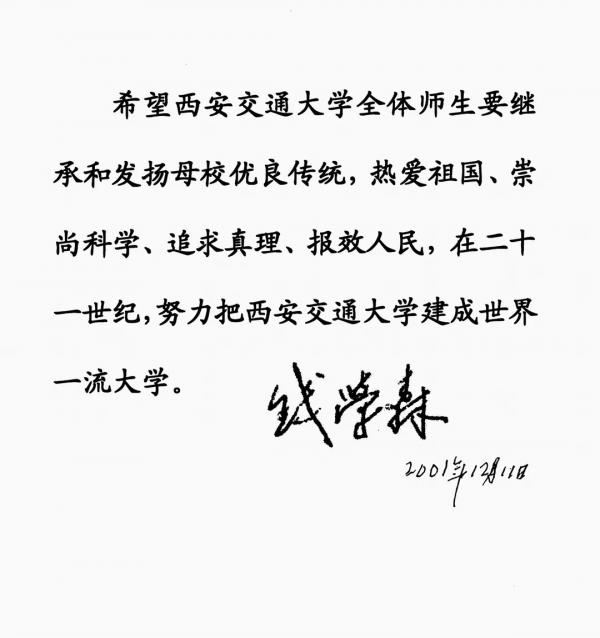 希望西安交通大学全体师生要继
承和发扬母校优良传统，热爱祖国、崇
尚科学、追求真理、报效人民，在二十
一世纪，努力把西安交通大学建成世界
一流大学。
钱学森
2001年12月11日